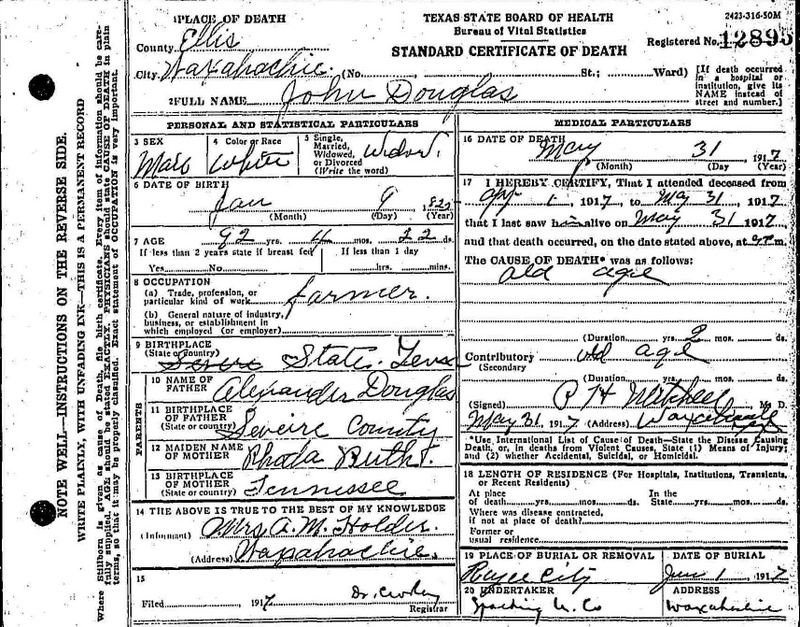 2423-316-50M
PLACE OF DEATH
TEXAS STATE BOARD OF HEALTH
Bureau of Vital Statistics
STANDARD CERTIFICATE OF DEATH
County Ellis
Registered No. 12895
City Waxahachie. (No. St.; Ward)
[If death occurred in a hospital or institution, give its NAME instead of street and number.]
2 FULL NAME John Douglas
PERSONAL AND STATISTICAL PARTICULARS
3 SEX
Male
4 Color or Race
White
5 Single, Married, Widowed, or Divorced (Write the word)
6 DATE OF BIRTH
Jan 9
(Month) (Day) (Year)
7 AGE
92 yrs. 4 mos. 22 ds.
If less than 2 years state if breast fed
Yes No
If less than 1 day
hrs. mins.
8 OCCUPATION
(a) Trade, profession, or particular kind of work farmer.
(b) General nature of industry, business, or establishment in which employed (or employer)
9 BIRTHPLACE
(State or Country) State.
PARENTS
10 NAME OF FATHER Alexander Douglas
11 BIRTHPLACE OF FATHER (State or Country) County
12 MAIDEN NAME OF MOTHER Rhoda
13 BIRTHPLACE OF MOTHER (State or country) Tennessee
14 THE ABOVE IS TRUE TO THE BEST OF MY KNOWLEDGE
(Informant) Mrs A. M. Holder.
(Address) Waxahachie.
15
Filed 1917 Dr.
Registrar
MEDICAL PARTICULARS
16 DATE OF DEATH
May 31 1917
(Month) (Day) (Year)
17 I HEREBY CERTIFY, That I attended deceased from
Apr 1 1917, to May 31 1917
that I last saw him alive on May 31 1917
and that death occurred, on the date stated above, at m.
The CAUSE OF DEATH* was as follows:
old age
(Duration) yrs. 2 mos. ds.
Contributory old age
(Secondary)
(Duration) yrs. mos. ds.
(Signed) M. D.
May 31, 1917 (Address)
*Use International List of Cause of Death—State the Disease Causing Death, or, in deaths from Violent Causes, State (1) Means of Injury; and (2) whether Accidental, Suicidal, or Homicidal.
18 LENGTH OF RESIDENCE (For Hospitals, Institutions, Transients, or Recent Residents)
At place of death yrs. mos. ds. In the State yrs. mos. ds.
Where was disease contracted, if not at place of death?
Former or usual residence
19 PLACE OF BURIAL OR REMOVAL
City
DATE OF BURIAL
June 1 1917
20 UNDERTAKER
Co
ADDRESS
Waxahachie
NOTE WELL—INSTRUCTIONS ON THE REVERSE SIDE.
WRITE PLAINLY, WITH UNFADING INK—THIS IS A PERMANENT RECORD
Where Stillborn is given as cause of Death, file birth certificate. Every item of information should be carefully supplied. AGE should be stated EXACTLY. PHYSICIANS should state CAUSE OF DEATH in plain terms, so that it may be properly classified. Exact statement of OCCUPATION is very important.